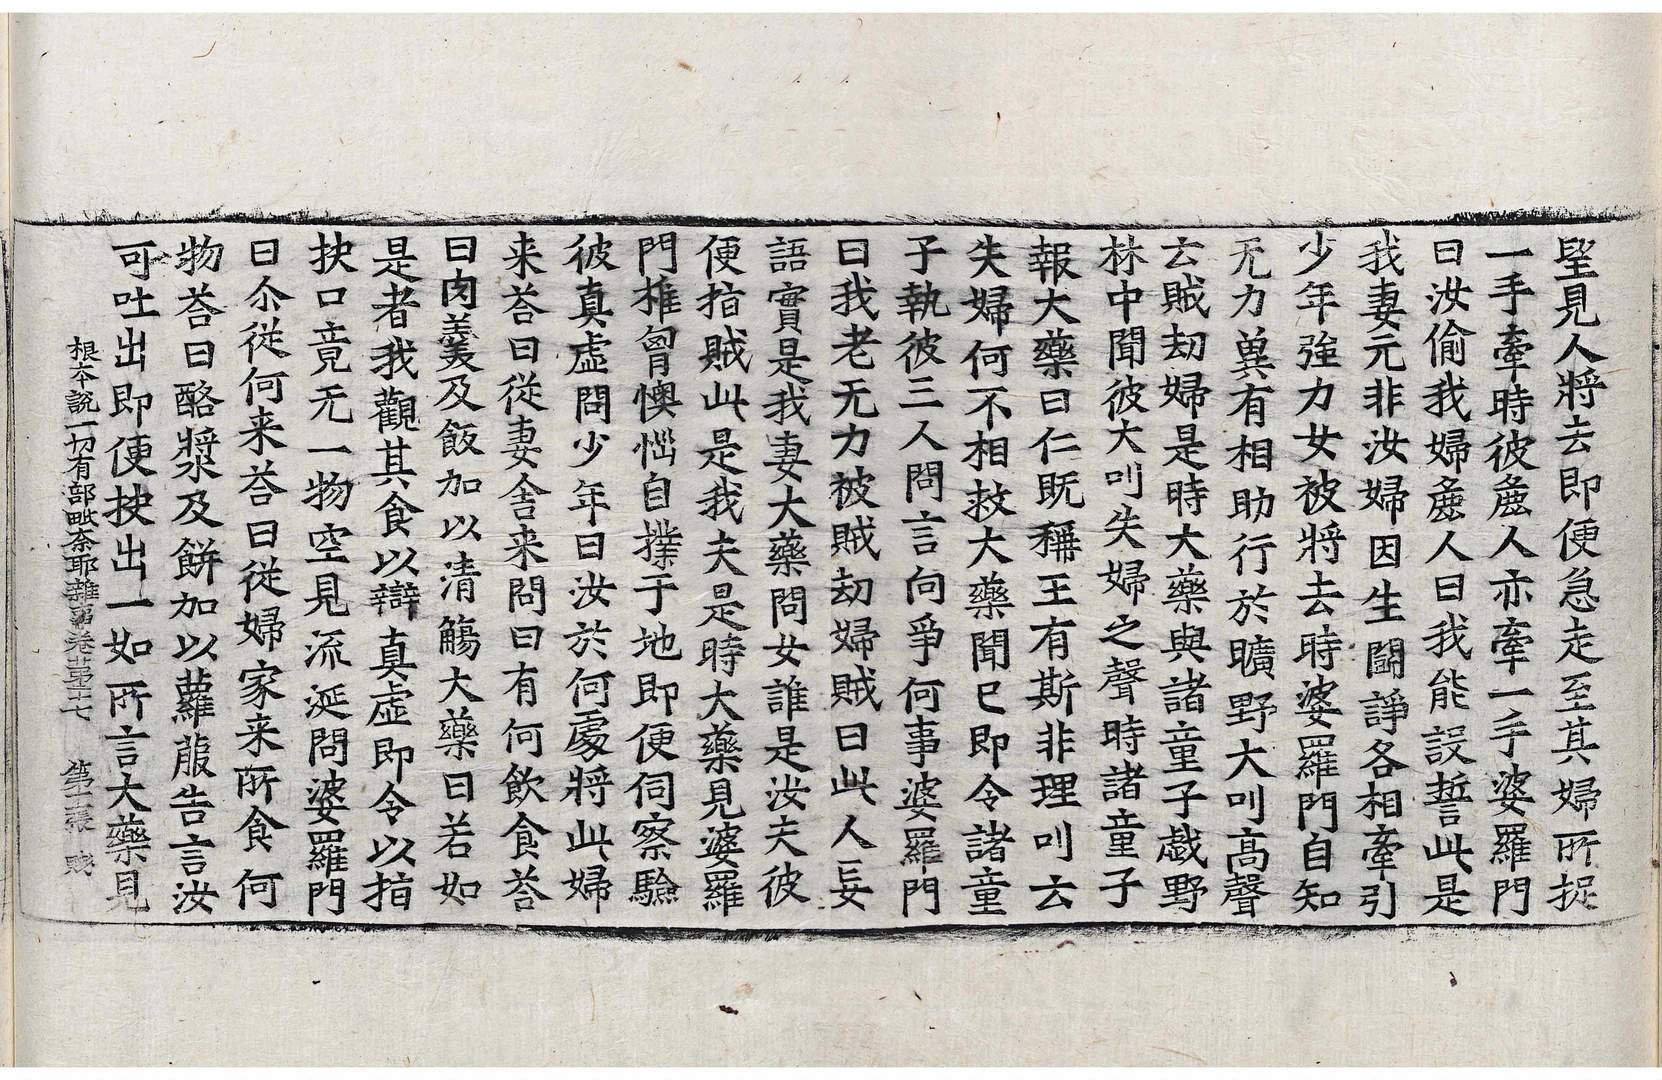 望見人將去即便急走至其婦所捉
一手牽時彼麁人亦牽一手婆羅門
曰汝偷我婦麁人曰我能設誓此是
我妻元非汝婦因生鬪諍各相牽引
少年強力女被將去時婆羅門自知
无力兾有相助行於曠野大叫高聲
云賊劫婦是時大藥與諸童子戱野
林中聞彼大叫失婦之聲時諸童子
報大藥曰仁既稱王有斯非理叫云
失婦何不相救大藥聞已即令諸童
子執彼三人問言向爭何事婆羅門
曰我老无力被賊劫婦賊曰此人妄
語實是我妻大藥問女誰是汝夫彼
便指賊此是我夫是時大藥見婆羅
門椎胷懊惱自撲于地即便伺察驗
彼真虛問少年曰汝於何處將此婦
来荅曰從妻舍来問曰有何飲食荅
曰肉羹及飯加以清觴大藥曰若如
是者我觀其食以辯真虛即令以指
抉口竟无一物空見流涎問婆羅門
曰尒從何来荅曰從婦家来所食何
物荅曰酪漿及餅加以蘿菔告言汝
可吐出即便抉出一如所言大藥見
根本說一切有部毗奈耶雜事卷第二十七 第張